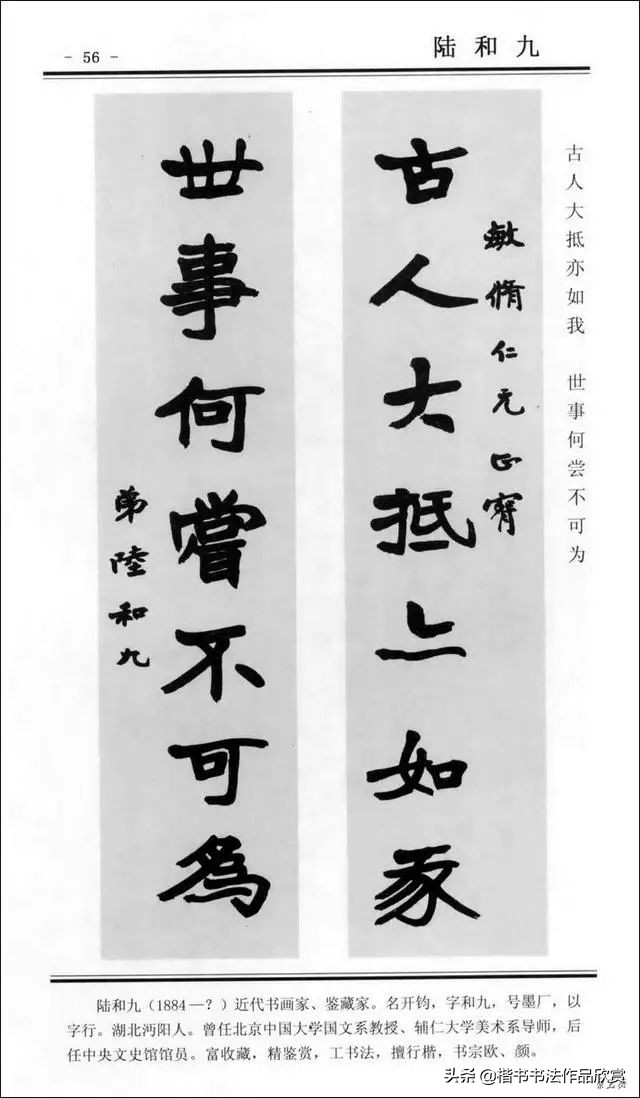 - 56 -
陆和九
古人大抵亦如我 世事何尝不可为
敏脩仁兄正
古人大抵亦如我
世事何嘗不可為
弟陸和九
陆和九（1884—？）近代书画家、鉴藏家。名开钧，字和九，号墨厂，以
字行。湖北沔阳人。曾任北京中国大学国文系教授、辅仁大学美术系导师，后
任中央文史馆馆员。富收藏，精鉴赏，工书法，擅行楷，书宗欧、颜。
头条 @楷书书法作品欣赏